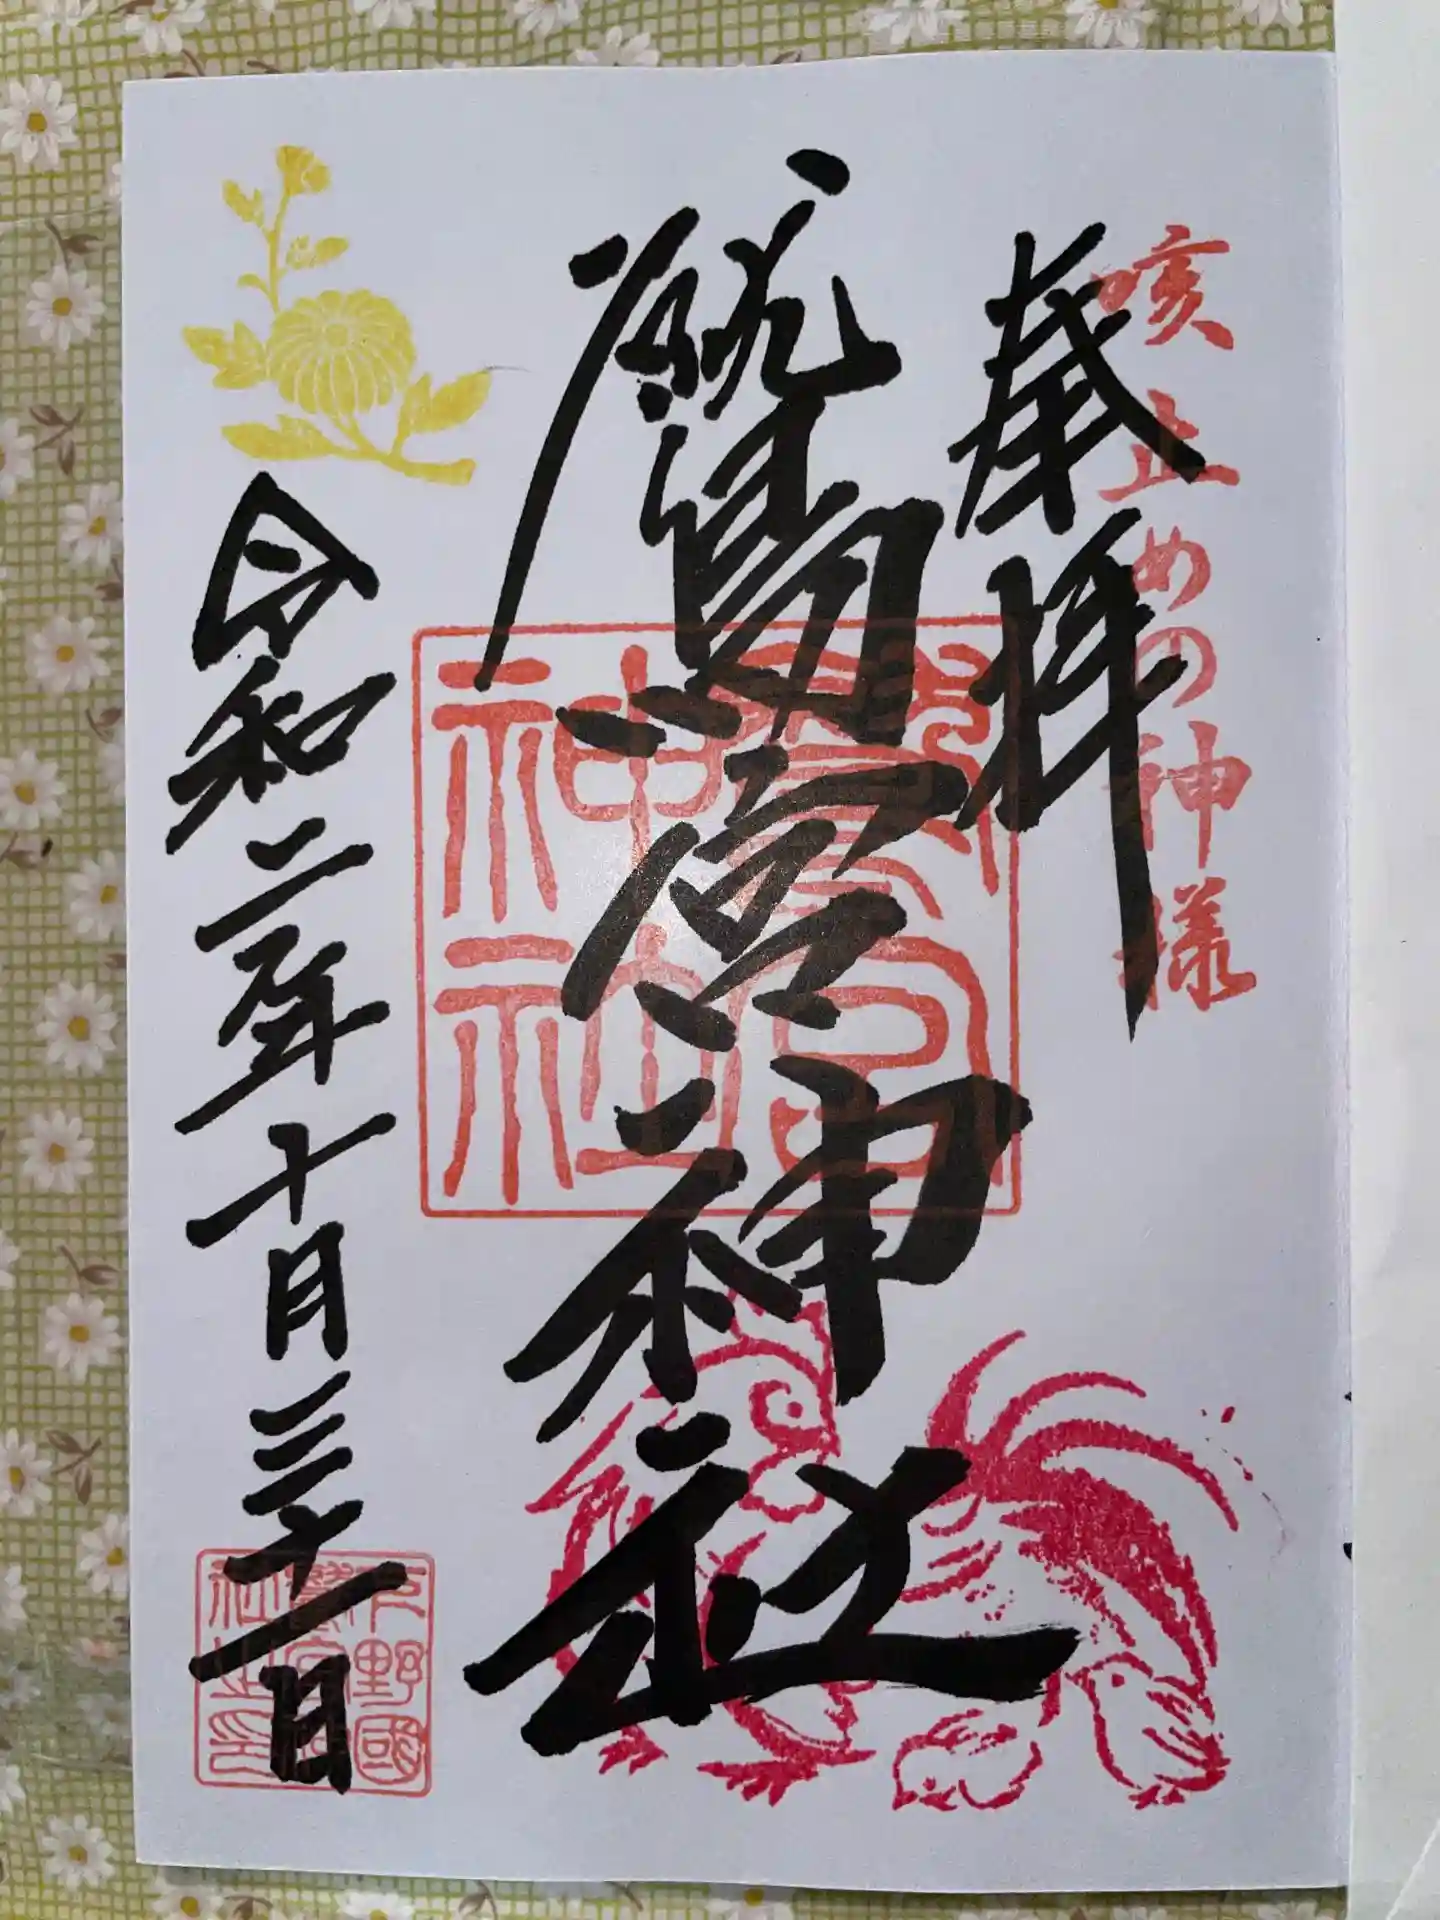 咳止めの神様
奉拝
鷲宮神社
鷲宮
神社
令和二年十月三十一日
下野國
鷲宮神
社之印